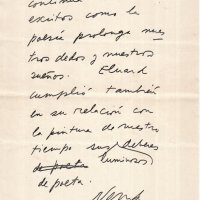 continua
excitos como la
poesía prolonga nues
tros dedos y nuestros
sueños. Eluard
cumplió también
en su relación con
la pintura de nuestro
tiempo sus deberes
de poeta luminosos
de poeta.